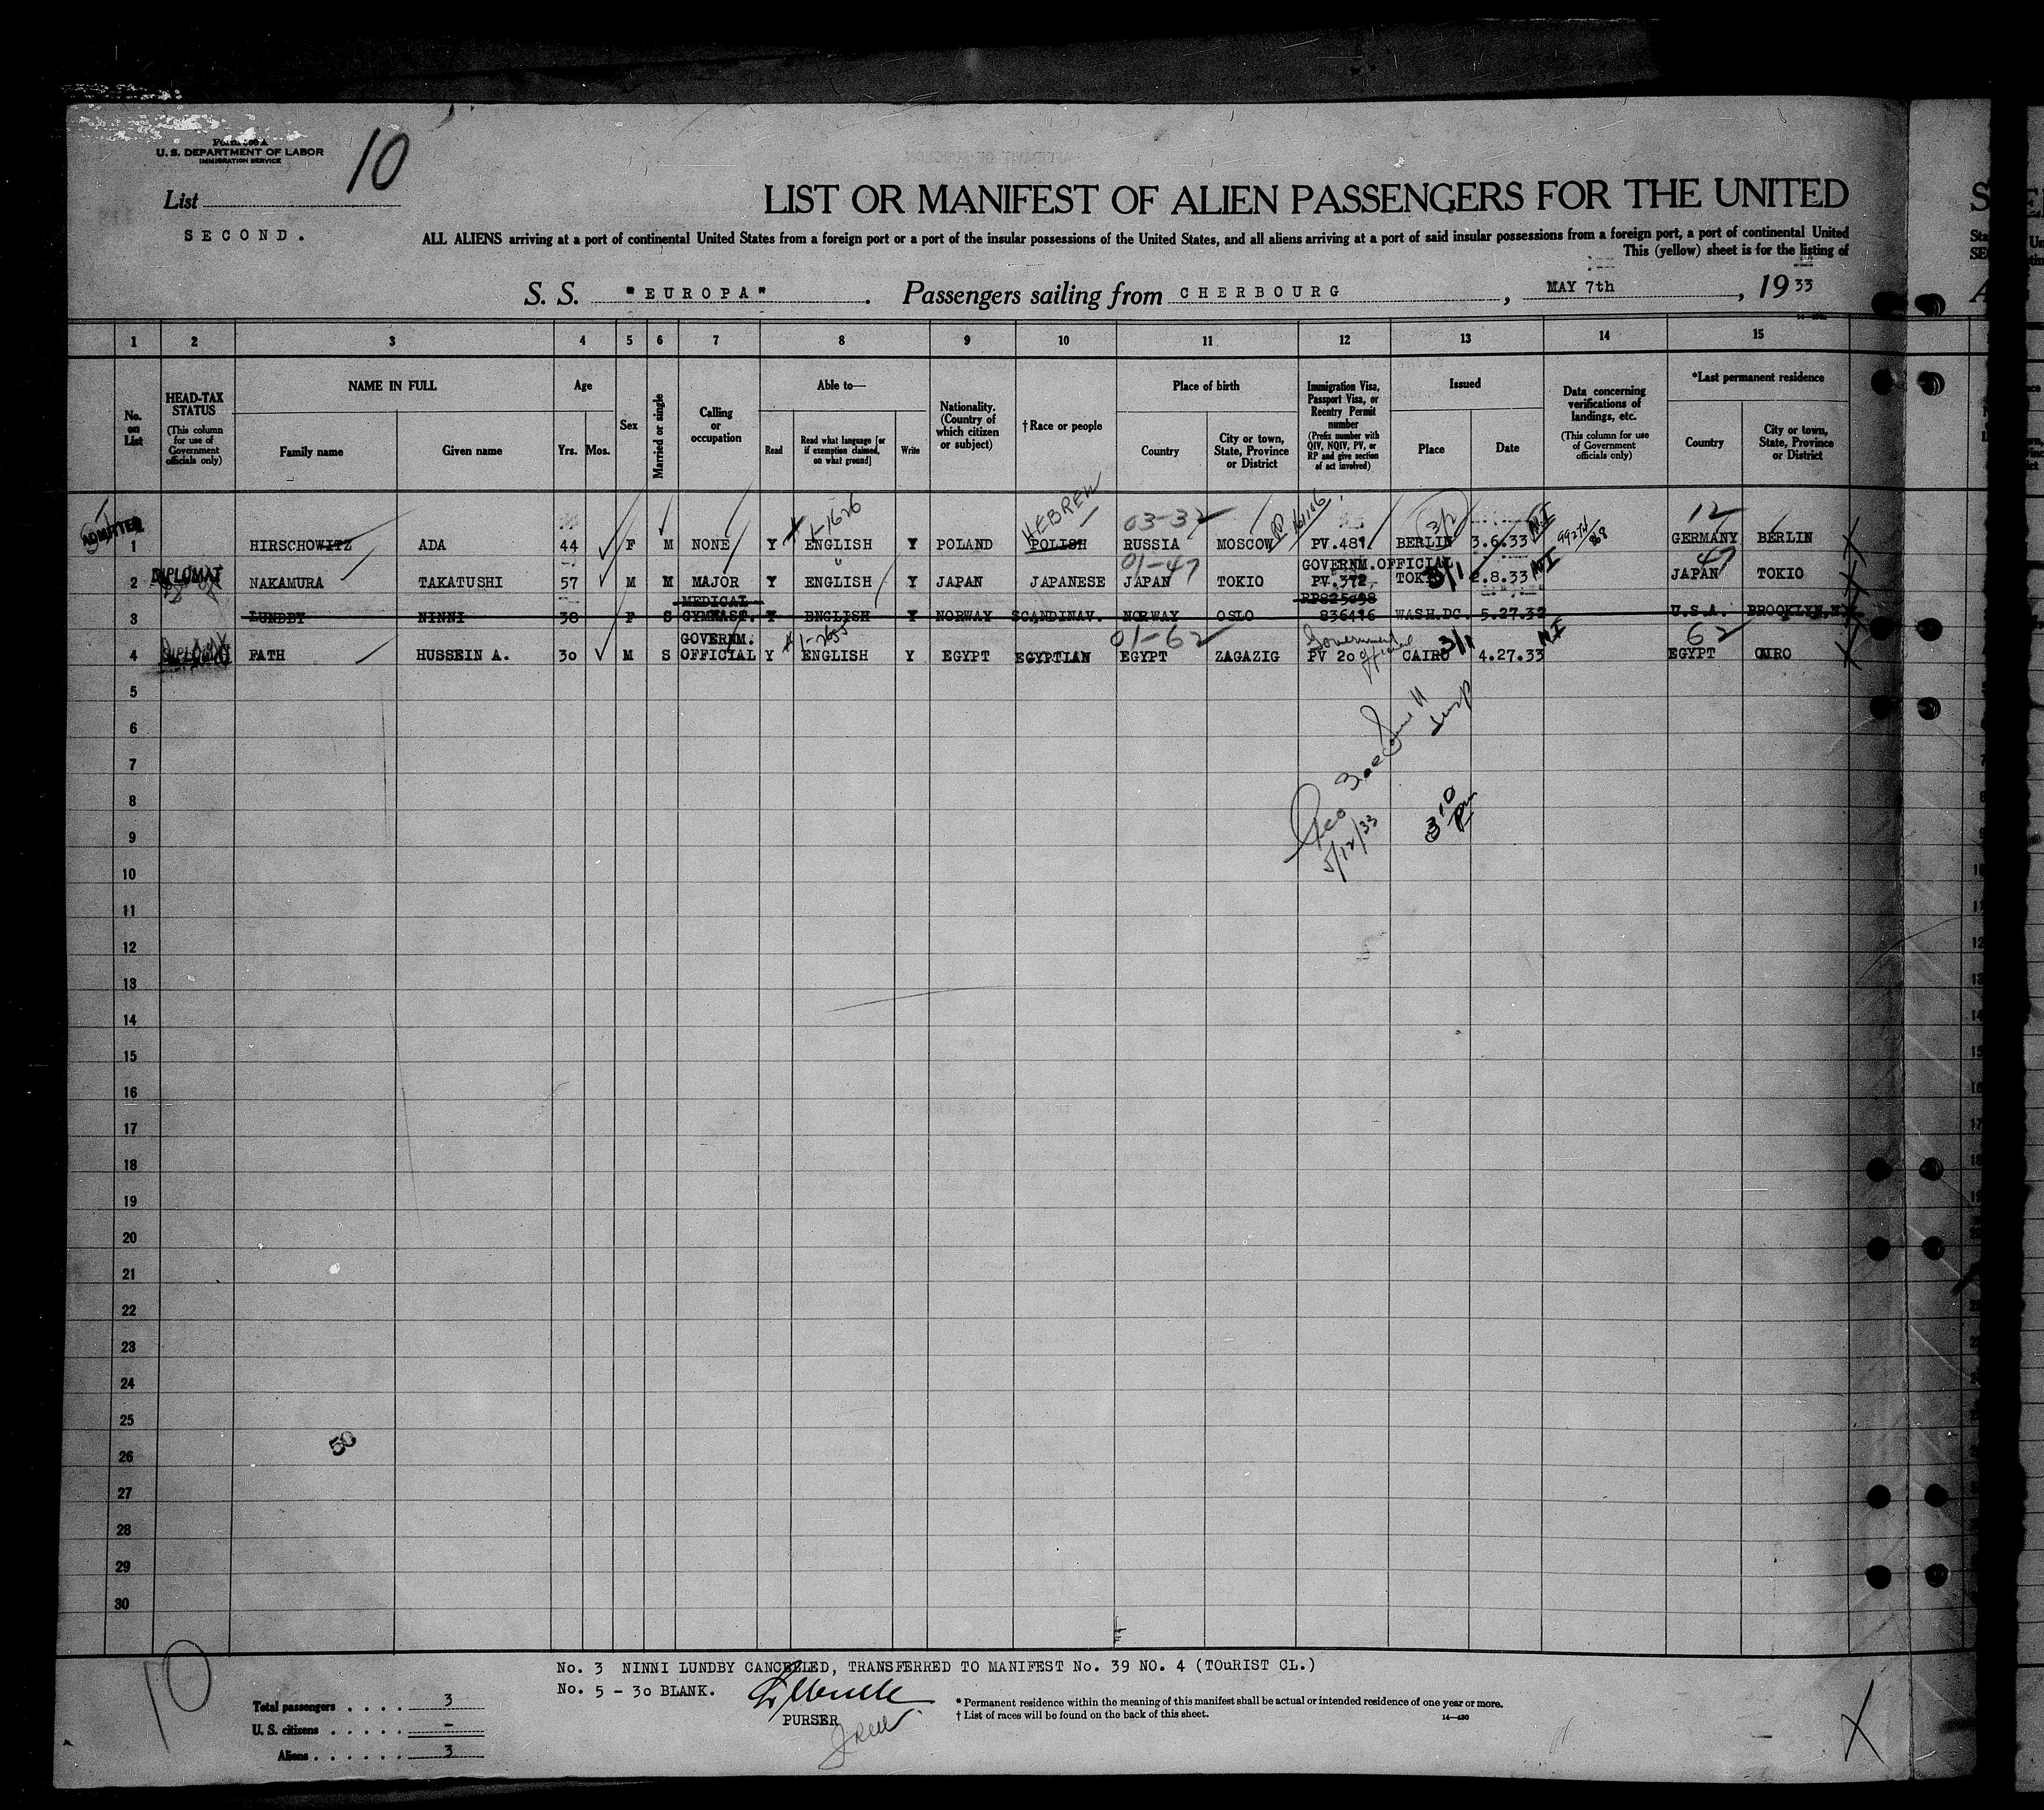 U. S. DEPARTMENT OF LABOR
IMMIGRATION SERVICE
10
List
SECOND.
LIST OR MANIFEST OF ALIEN PASSENGERS FOR THE UNITED
ALL ALIENS arriving at a port of continental United States from a foreign port or a port of the insular possessions of the United States, and all aliens arriving at a port of said insular possessions from a foreign port, a port of continental United
This (yellow) sheet is for the listing of
S. S. "EUROPA". Passengers sailing from CHERBOURG, MAY 7th, 19 33
1 2 3 4 5 6 7 8 9 10 11 12 13 14 15
No. on List
HEAD-TAX STATUS (This column for use of Government officials only)
NAME IN FULL
Family name Given name
Age
Yrs. Mos.
Sex
Married or single
Calling or occupation
Able to—
Read Read what language [or if exemption claimed, on what ground] Write
Nationality. (Country of which citizen or subject)
† Race or people
Place of birth
Country City or town, State, Province or District
Immigration Visa, Passport Visa, or Reentry Permit number (Prefix number with QIV, NQIV, PV, or RP and give section of act involved)
Issued
Place Date
Data concerning verifications of landings, etc. (This column for use of Government officials only)
*Last permanent residence
Country City or town, State, Province or District
ADMITTED 1-1626 HEBREW 03-32 3/2 12
1 HIRSCHOWITZ ADA 44 F M NONE Y ENGLISH Y POLAND POLISH RUSSIA MOSCOW PV.481. BERLIN 3.6.33 GERMANY BERLIN
01-47 GOVERNM.OFFICIAL 47
DIPLOMAT 2 NAKAMURA TAKATUSHI 57 M M MAJOR Y ENGLISH Y JAPAN JAPANESE JAPAN TOKIO PV.372 TOKIO 3/1 2.8.33 JAPAN TOKIO
MEDICAL RP825098
3 LUNDBY NINNI 38 F S GYMNAST. Y ENGLISH Y NORWAY SCANDINAV. NORWAY OSLO 836416 WASH.DC. 5.27.32 U.S.A. BROOKLYN.NY
GOVERNM. 1-2655 01-62 Government official 3/1 62
4 DIPLOMAT FATH HUSSEIN A. 30 M S OFFICIAL Y ENGLISH Y EGYPT EGYPTIAN EGYPT ZAGAZIG PV 20 CAIRO 4.27.33 EGYPT CAIRO
5
6
7
8
9
5/12/33
3 10 PM
10
11
12
13
14
15
16
17
18
19
20
21
22
23
24
25
50
26
27
28
29
30
10
No. 3 NINNI LUNDBY CANCELLED, TRANSFERRED TO MANIFEST No. 39 NO. 4 (TOuRIST CL.)
No. 5 - 30 BLANK.
PURSER
Total passengers . . . . 3
U. S. citizens . . . . . –
Aliens . . . . . . 3
* Permanent residence within the meaning of this manifest shall be actual or intended residence of one year or more.
† List of races will be found on the back of this sheet.
14—430
X